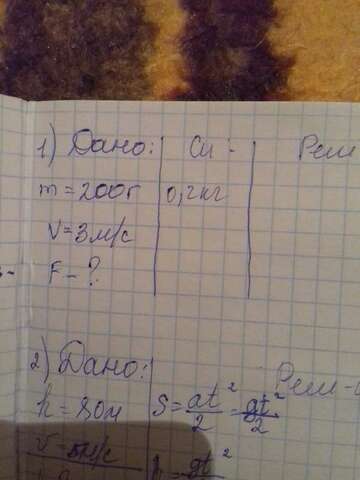 1) Дано: Си - Реш
m = 200г 0,2кг
V = 3м/с
F - ?
2) Дано: Реш-
h = 80м S = at²/2 = gt²/2
V = 5м/с
h = gt²